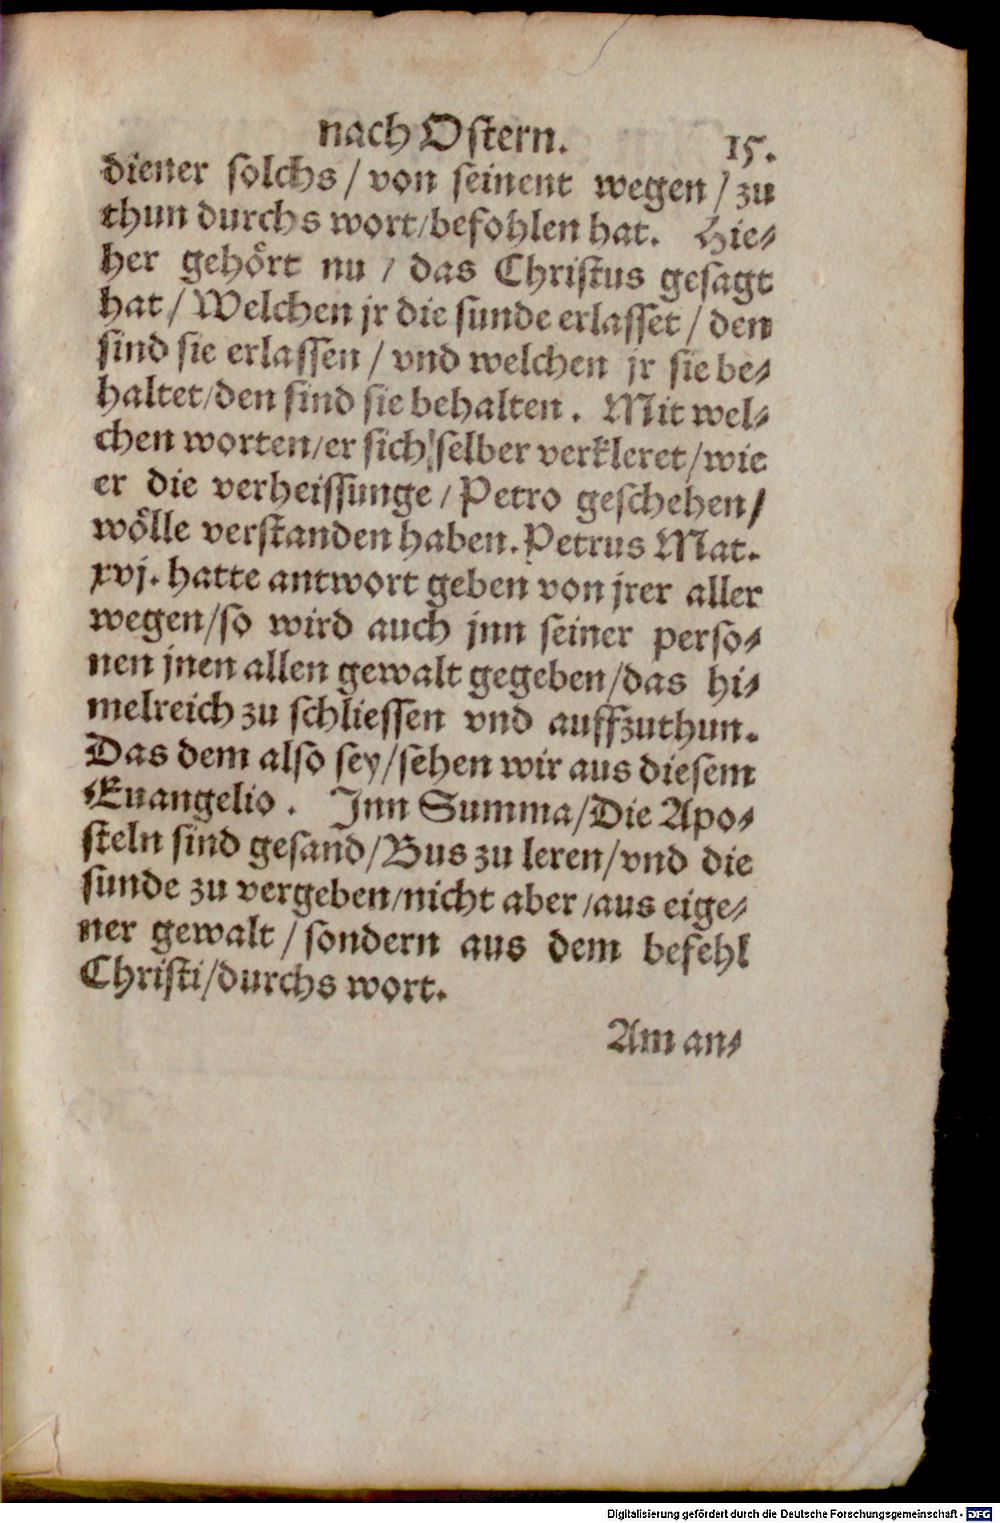 nach Ostern. 15.
diener solchs / von seinent wegen / zu
thun durchs wort/befohlen hat. Hie-
her gehört nu / das Christus gesagt
hat / Welchen jr die sunde erlasset / den
sind sie erlassen / vnd welchen jr sie be-
haltet/den sind sie behalten. Mit wel-
chen worten/er sich selber verkleret/wie
er die verheissunge / Petro geschehen/
wölle verstanden haben. Petrus Mat.
xvj. hatte antwort geben von jrer aller
wegen/so wird auch jnn seiner perso-
nen jnen allen gewalt gegeben/das hi-
melreich zu schliessen vnd auffzuthun.
Das dem also sey/sehen wir aus diesem
Euangelio. Jnn Summa/Die Apo-
steln sind gesand/Bus zu leren/vnd die
sunde zu vergeben/nicht aber/aus eige-
ner gewalt / sondern aus dem befehl
Christi/durchs wort.
Am an-
Digitalisierung gefördert durch die Deutsche Forschungsgemeinschaft - DFG